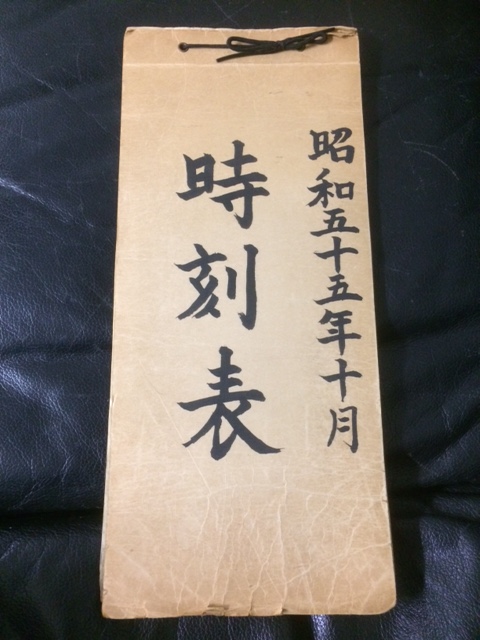 昭和五十五年十月
時刻表